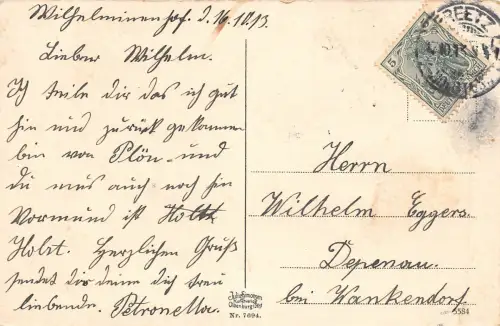 Wilhelminenhof. d. 16.10.13.
Lieber Wilhelm.
Ich teile dir das ich gut
hin und zurück gekommen
bin von Plön und
du mus auch noch hin
Vormund ist Holtt
Holst. Herzlichen Gruß
sendet dir deine dich treu
liebende. Petronella.
PREETZ
5
Herrn
Wilhelm Eggers.
Depenau.
bei Wankendorf.
Nr. 7694.
5584